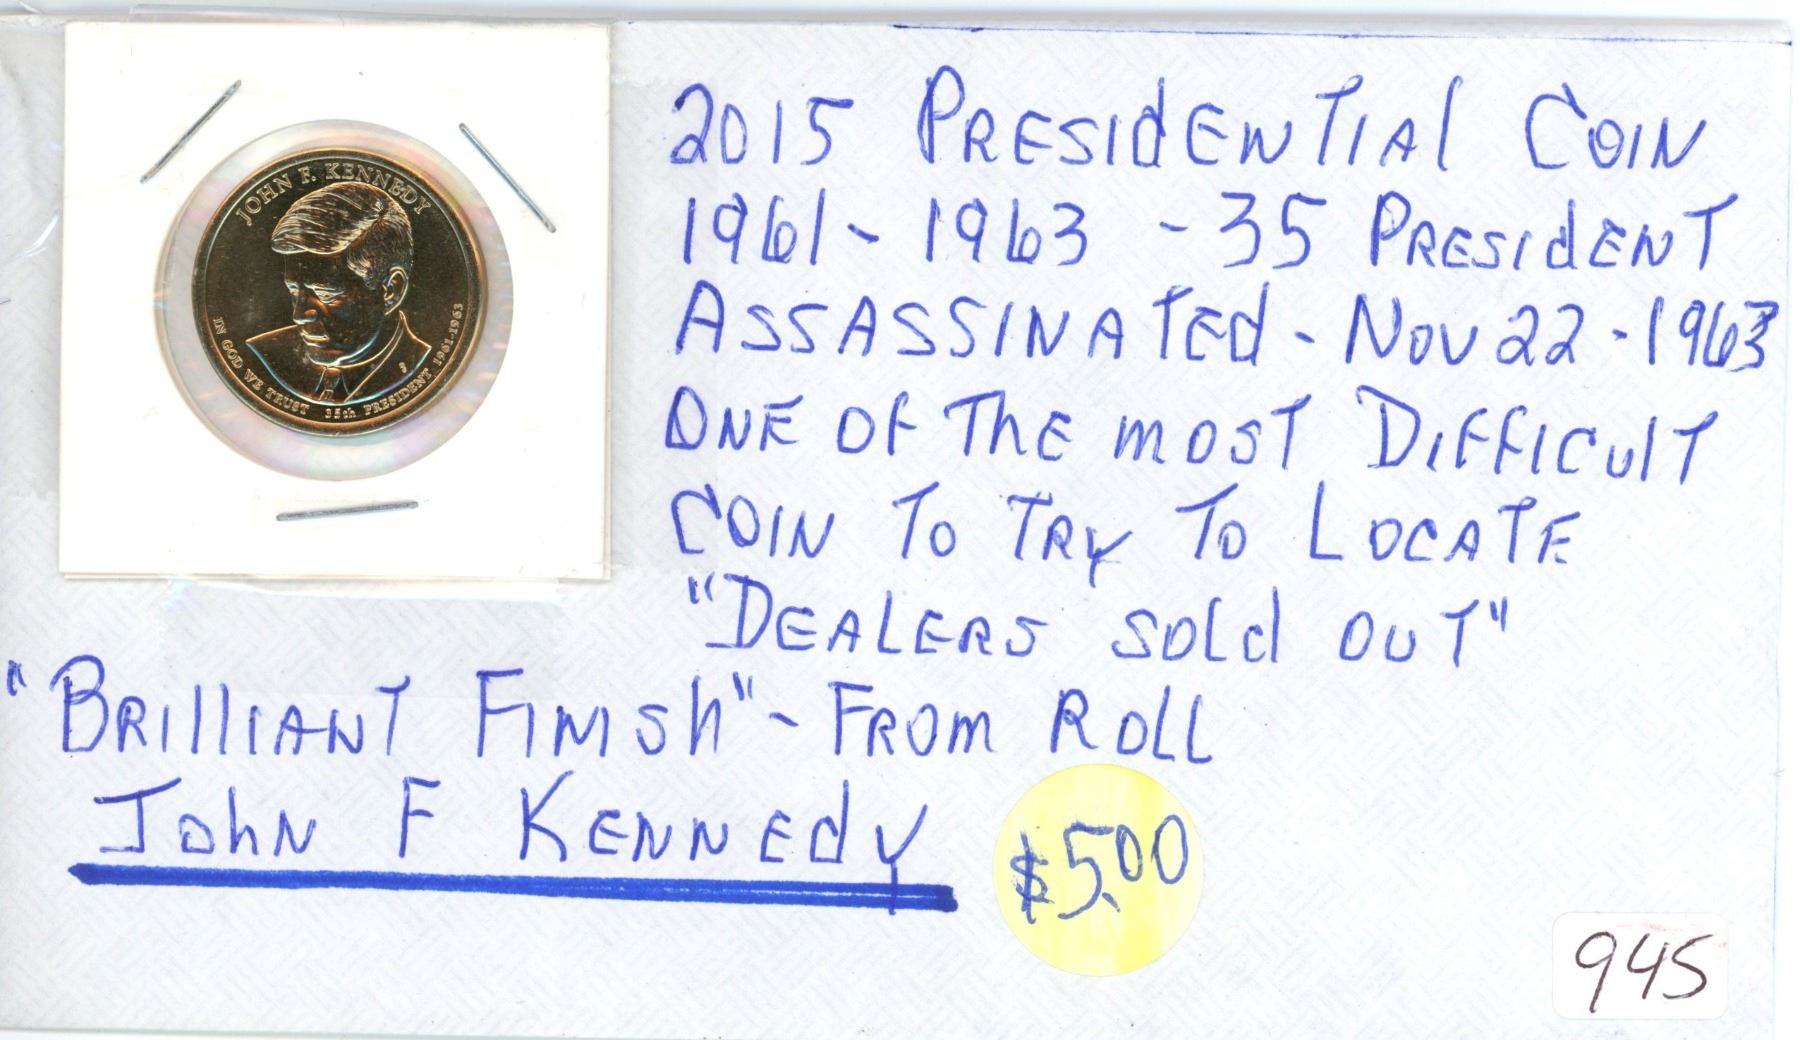 JOHN F. KENNEDY
IN GOD WE TRUST 35th PRESIDENT 1961-1963
2015 PRESIdENTIAl COIN
1961 - 1963 - 35 PRESIdENT
ASSASSINATEd - NOV 22 - 1963
ONE OF ThE mOST DIFFICulT
COIN TO TRY TO LOCATE
"DEALERS SOld OUT"
"BRIllIANT FINISh" - FROm ROLL
JOhN F KENNEdY
$5.00
945